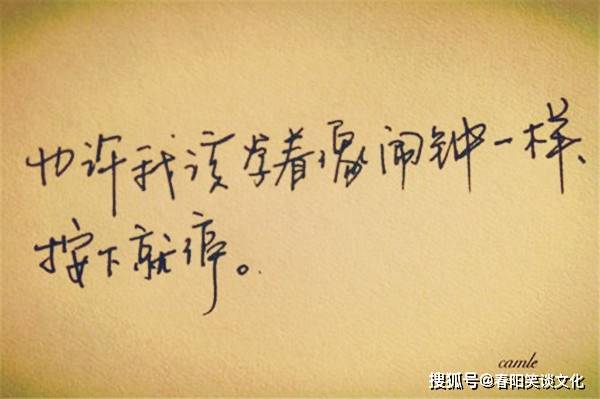 也许我该学着像闹钟一样、
按下就停。
camle
搜狐号@春阳笑谈文化